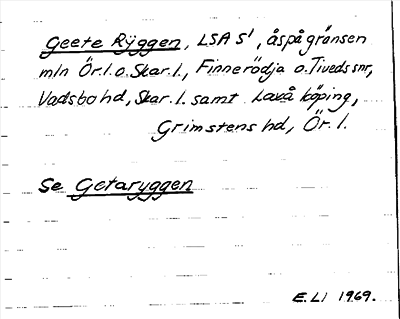 Geete Rÿggen, LSA S¹, ås på gränsen
mln Ör.l. o. Skar.l., Finnerödja o. Tiveds snr,
Vadsbo hd, Skar.l. samt Laxå köping,
Grimstens hd, Ör.l.
Se Getaryggen
E.LI 1969.